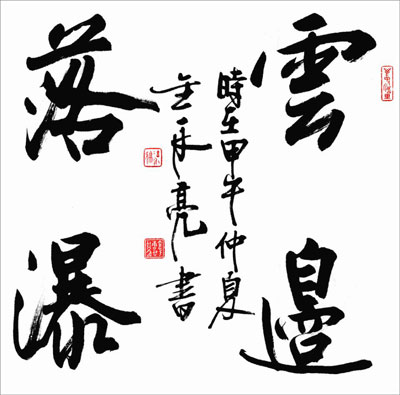 雲邊
落瀑
時在甲午仲夏
亮書